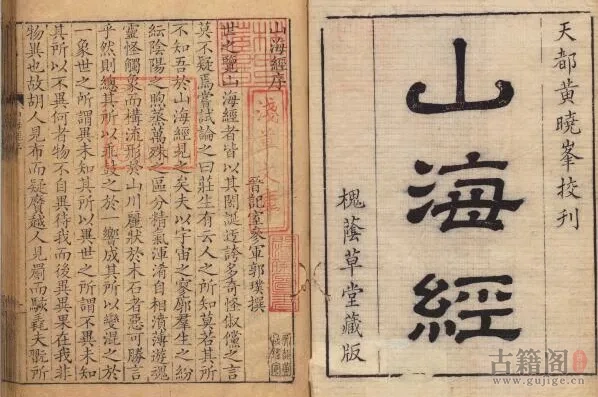 天都黄曉峯挍刊
山海經
槐蔭草堂藏版
山海經序
晉記室參軍郭璞撰
世之覽山海經者皆以其閎誕迂誇多奇怪俶儻之言
莫不疑焉嘗試論之曰莊生有云人之所知莫若其所
不知吾於山海經見之矣夫以宇宙之寥廓羣生之紛
紜陰陽之煦蒸萬殊之區分精氣渾淆自相濆薄遊魂
靈怪觸象而構流形於山川麗狀於木石者惡可勝言
乎然則總其所以乖鼓之於一響成其所以變混之於
一象世之所謂異未知其所以異世之所謂不異未知
其所以不異何者物不自異待我而後異異果在我非
物異也故胡人見布而疑黂越人見罽而駭毳夫翫所
淺草文庫
古籍阁
www.gujige.cn